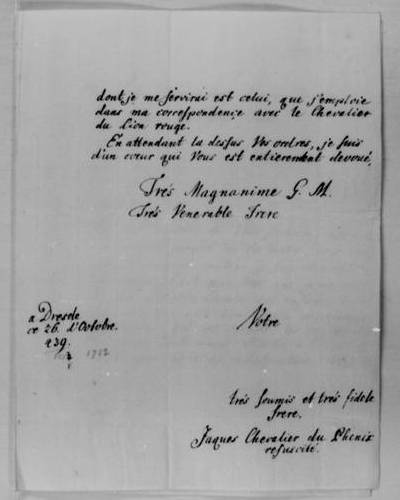 dont je me servirai est celui, que j'emploie
dans ma correspondence avec le Chevalier
du Lion rouge.
En attendant la dessus Vos ordres, je suis
d'un cœur qui Vous est entierement devoué,
Trés Magnanime G. M.
Trés Venerable Frere
a Dresde
ce 26. d'Octobre.
439.
Votre
trés soumis et trés fidele
frere.
Jaques Chevalier du Phenix
resuscité.